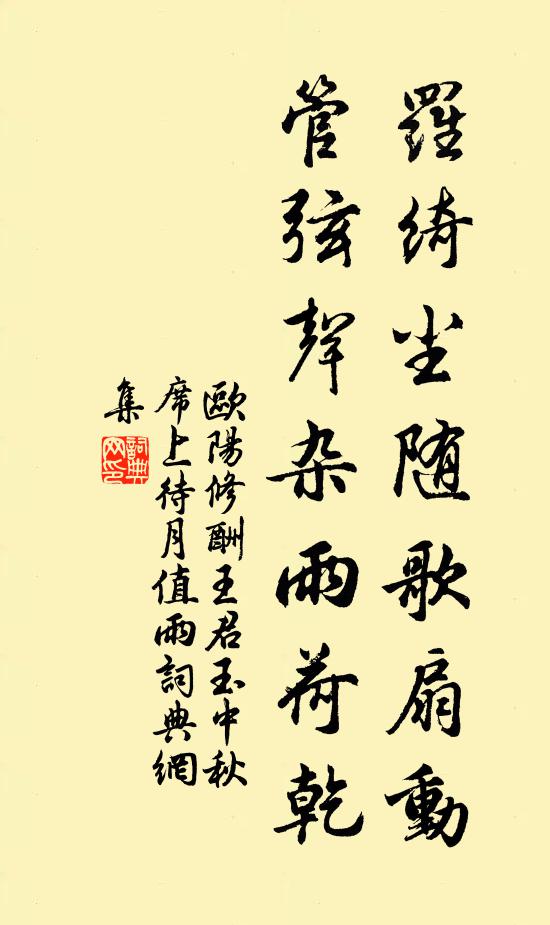 羅綺尘随歌扇動
管弦聲杂雨荷乾
歐陽修酬王君玉中秋
席上待月值雨詞典網
集
詞典网印